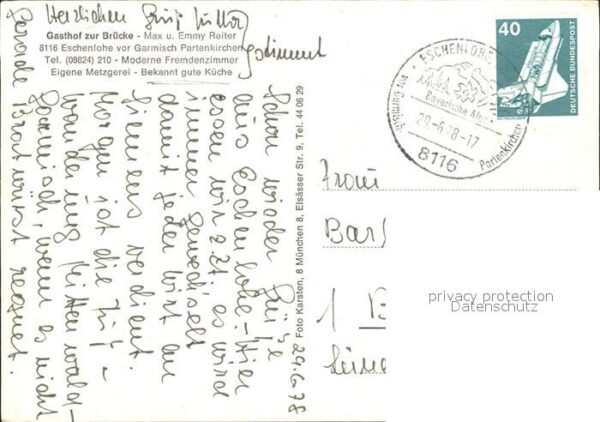 Herzlichen Gruß
Gasthof zur Brücke - Max u. Emmy Reiter
8116 Eschenlohe vor Garmisch Partenkirchen
Tel. (08824) 210 - Moderne Fremdenzimmer
Eigene Metzgerei - Bekannt gute Küche
29.6.78
Schon wieder Grüße
aus Eschenlohe. - Hier
essen wir z.Zt. es wird
immer gewechselt
damit jeder Wirt an
uns verdient.
Morgen ist die
Wanderung Mittenwald-
Garmisch, wenn es nicht
gerade Bratwürst regnet.
Foto Karsten, 8 München 8, Elsässer Str. 9, Tel. 44 06 29
ESCHENLOHE
Bayerische Alpen
28-6.78-17
vor Garmisch-
Partenkirchen
8116
40
DEUTSCHE BUNDESPOST
Frau
Bar
1
privacy protection
Datenschutz